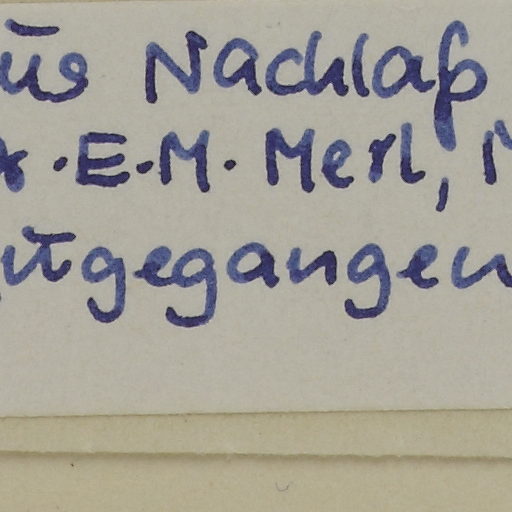 aus Nachlaß
Dr. E. M. Merl,
entgegangen